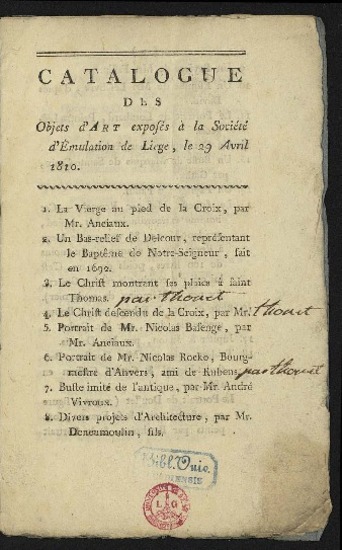 CATALOGUE
DES
Objets d'ART exposés à la Société
d'Émulation de Liege, le 29 Avril
1810.
1. La Vierge au pied de la Croix, par
Mr. Anciaux.
2. Un Bas-relief de Delcour, représentant
le Baptême de Notre-Seigneur, fait
en 1690.
3. Le Christ montrant ses plaies à saint
Thomas. par thouet
4. Le Christ descendu de la Croix, par Mr. thouet
5. Portrait de Mr. Nicolas Bassenge, par
Mr. Anciaux.
6. Portrait de Mr. Nicolas Rocko, Bourg-
mestre d'Anvers, ami de Rubens. par thouet
7. Buste imité de l'antique, par Mr. André
Vivroux.
8. Divers projets d'Architecture, par Mr.
Deneumoulin, fils.
Bibl. Univ.